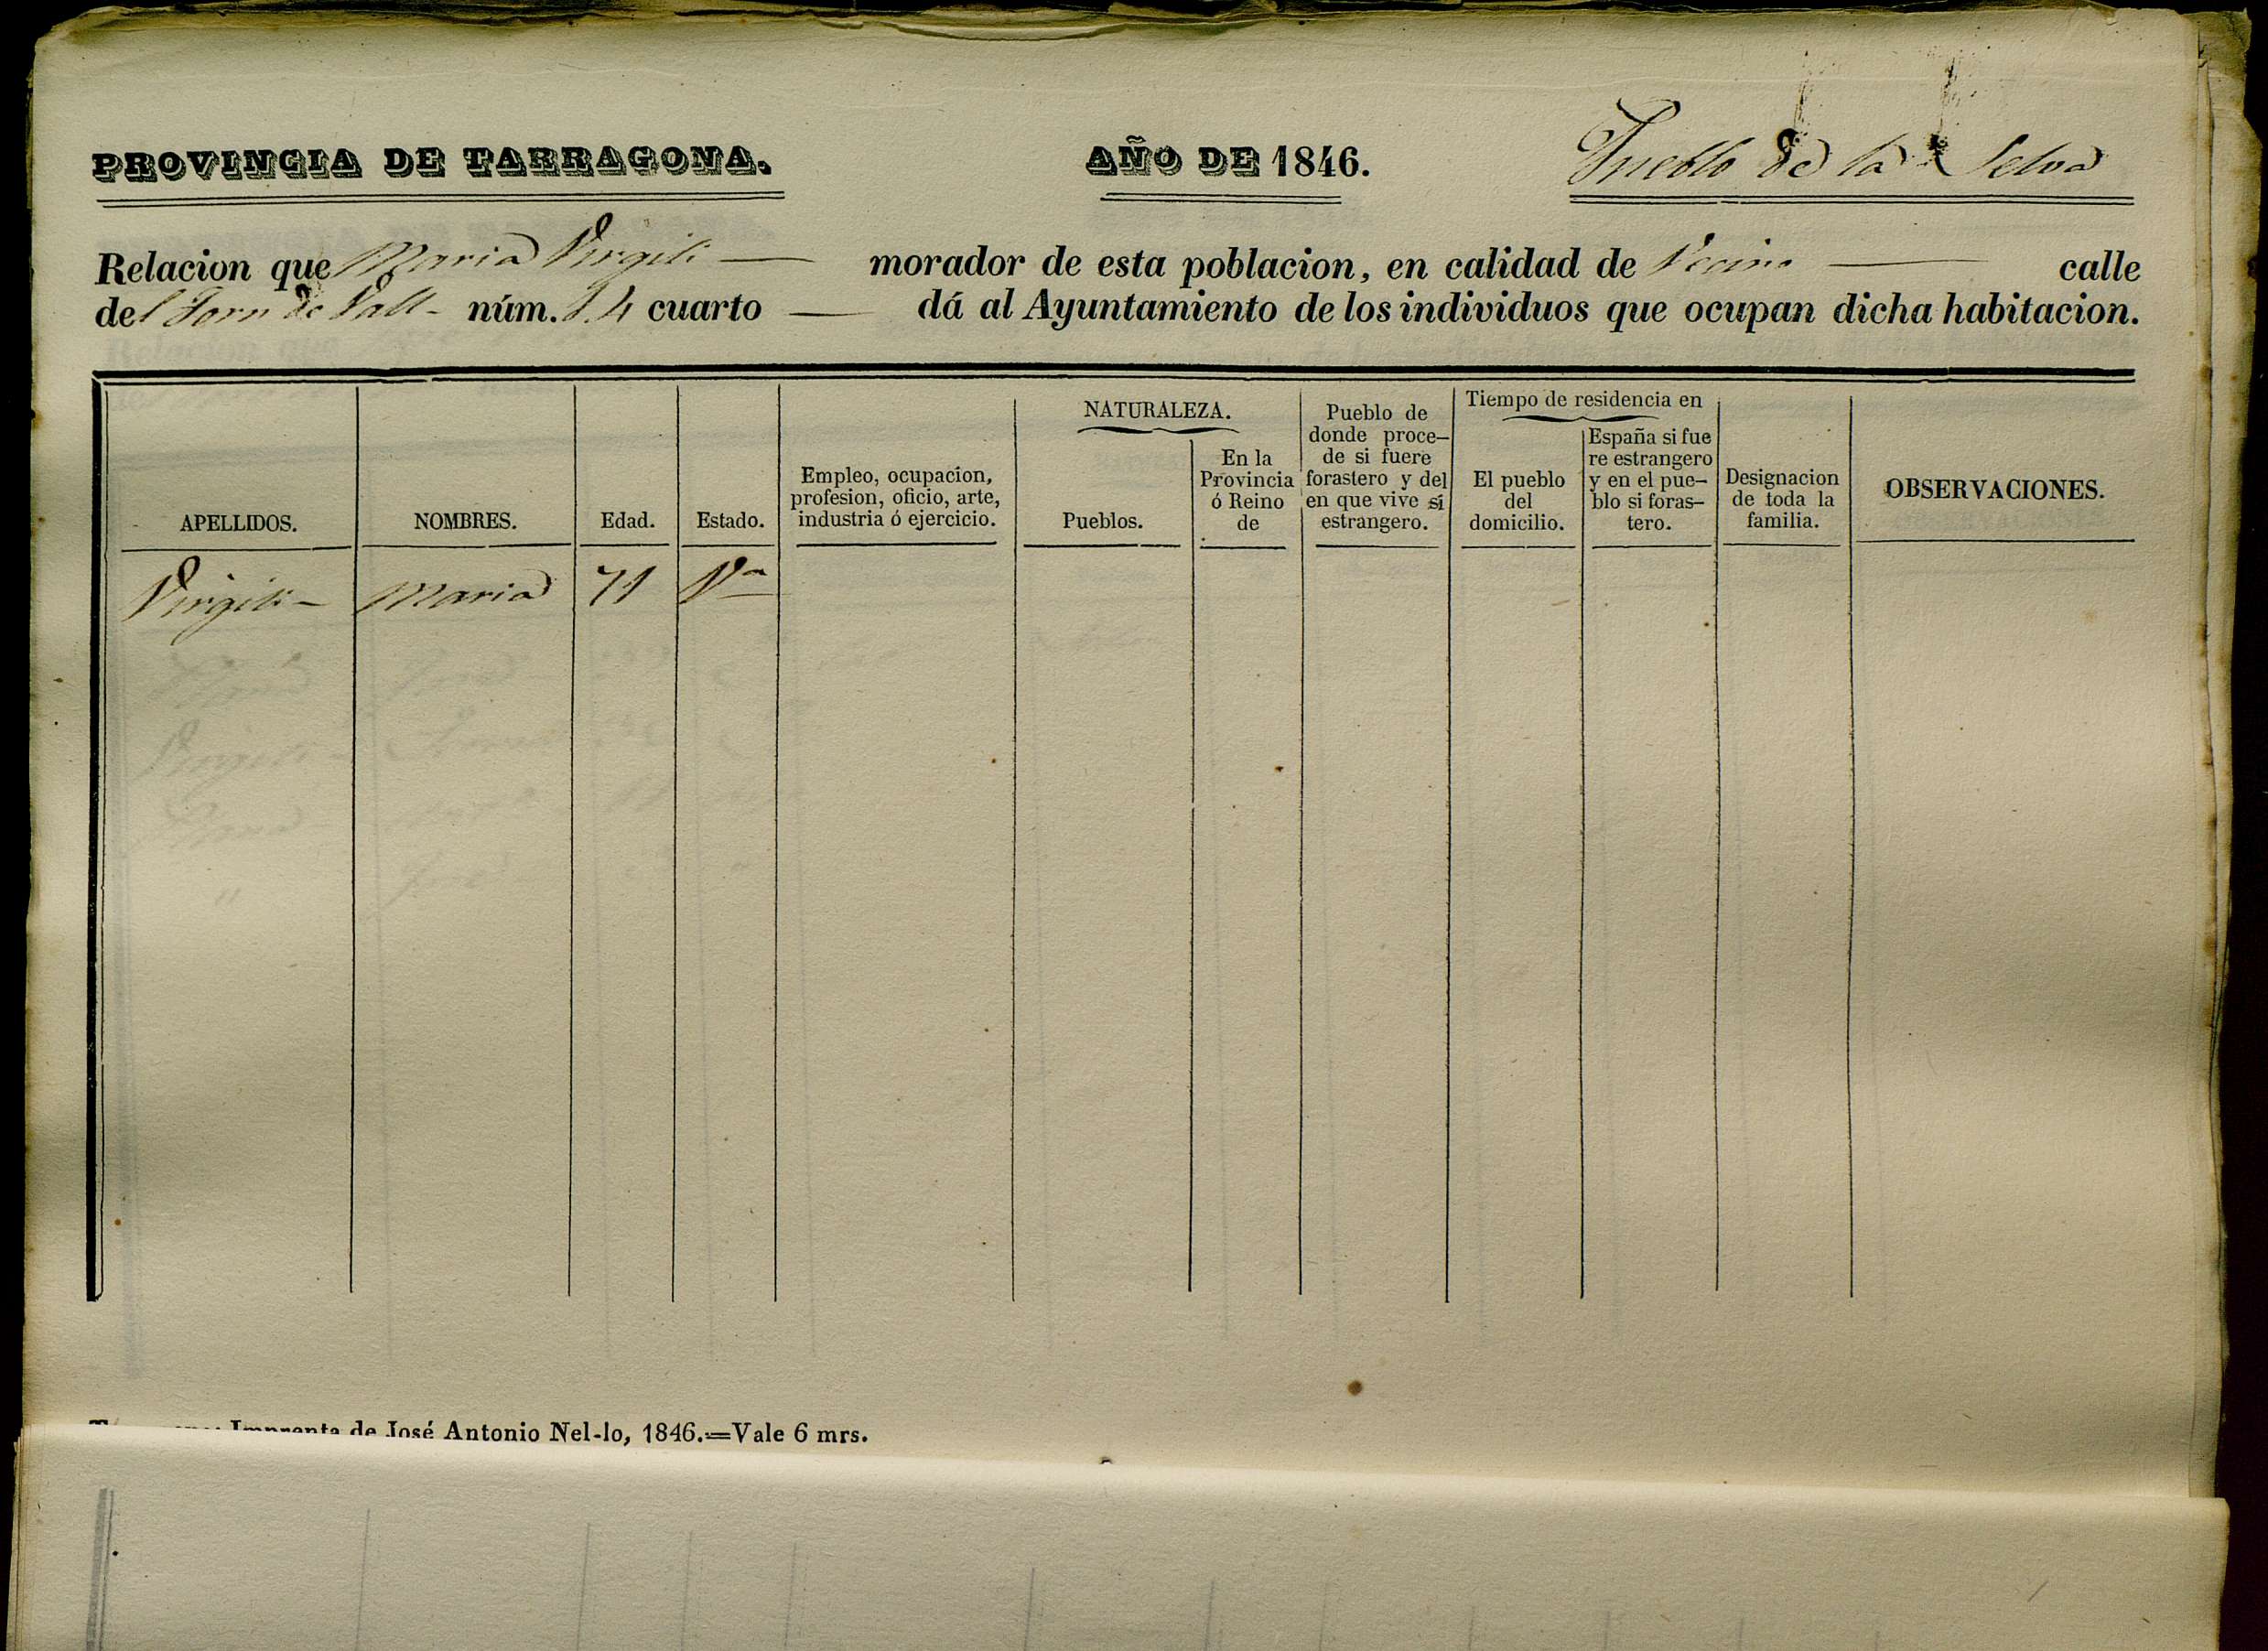 PROVINCIA DE TARRAGONA. AÑO DE 1846. Pueblo de la Selva
Relacion que Maria Virgili — morador de esta poblacion, en calidad de Vecino — calle
del Forn de Vall - núm. 14 cuarto — dá al Ayuntamiento de los individuos que ocupan dicha habitacion.
APELLIDOS.
NOMBRES.
Edad.
Estado.
Empleo, ocupacion,
profesion, oficio, arte,
industria ó ejercicio.
NATURALEZA.
Pueblos.
En la
Provincia
ó Reino
de
Pueblo de
donde proce-
de si fuere
forastero y del
en que vive si
estrangero.
Tiempo de residencia en
El pueblo
del
domicilio.
España si fue
re estrangero
y en el pue-
blo si foras-
tero.
Designacion
de toda la
familia.
OBSERVACIONES.
Virgili - Maria 71 Va
Imprenta de José Antonio Nel-lo, 1846.=Vale 6 mrs.